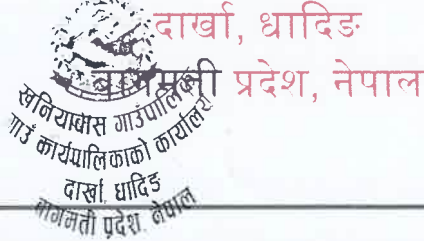 दार्खा, धादिङ
बागमती प्रदेश, नेपाल
खनियाबास गाउँपालिका
गाउँ कार्यपालिकाको कार्यालय
दार्खा, धादिङ
बागमती प्रदेश, नेपाल